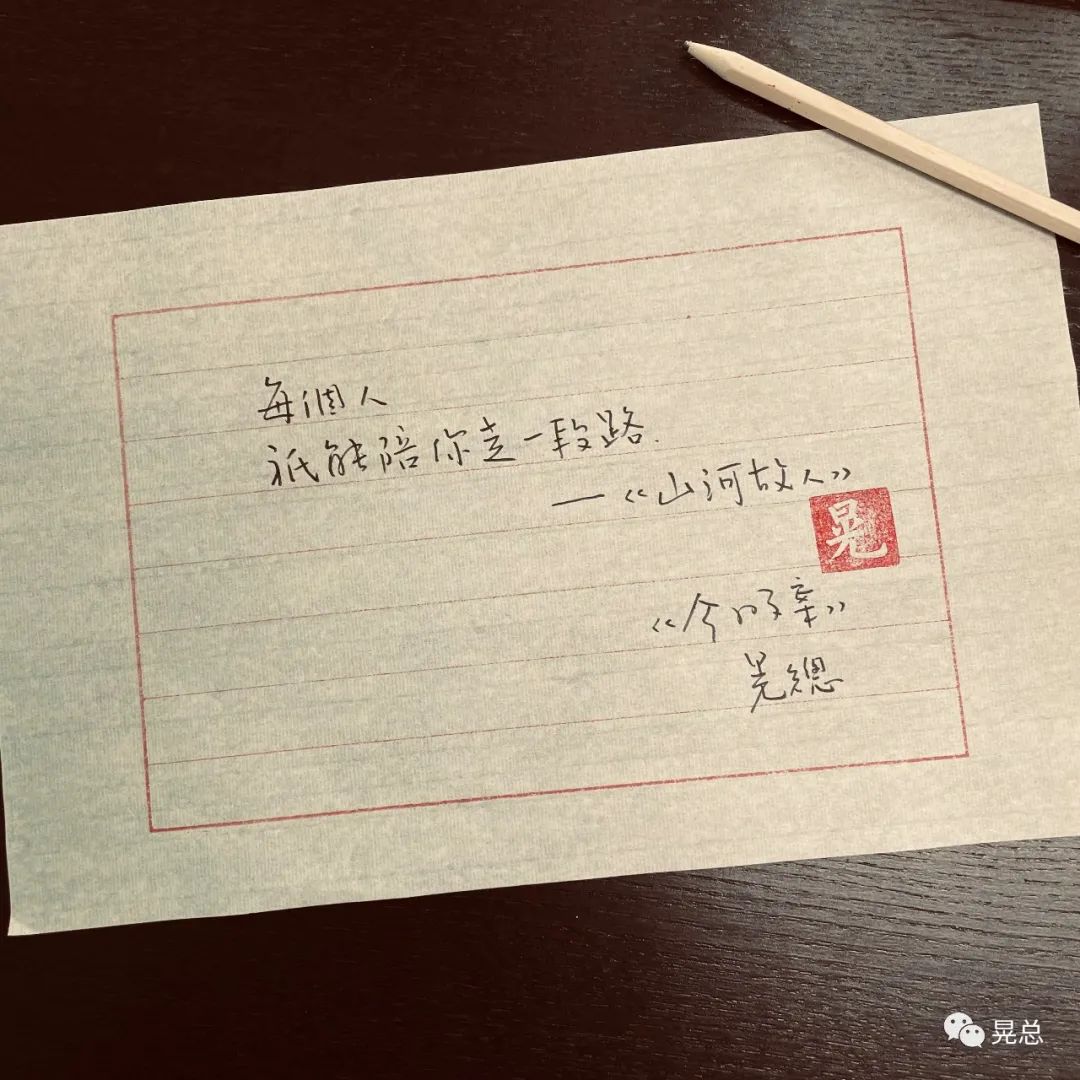 每個人
祇能陪你走一段路.
—《山河故人》
晃
《今日好案》
晃總
晃总